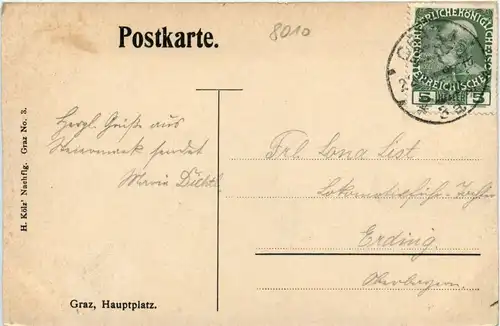 Postkarte.
8010
KAISERLICHE KÖNIGLICHE
ÖSTERREICHISCHE
5 5
H. Kölz' Nachflg. Graz No. 3.
Herzl. Grüße aus
Steiermark sendet
Marie
Frl. Lona List
Lokomotivführ.
Erding.
Oberbayern.
Graz, Hauptplatz.